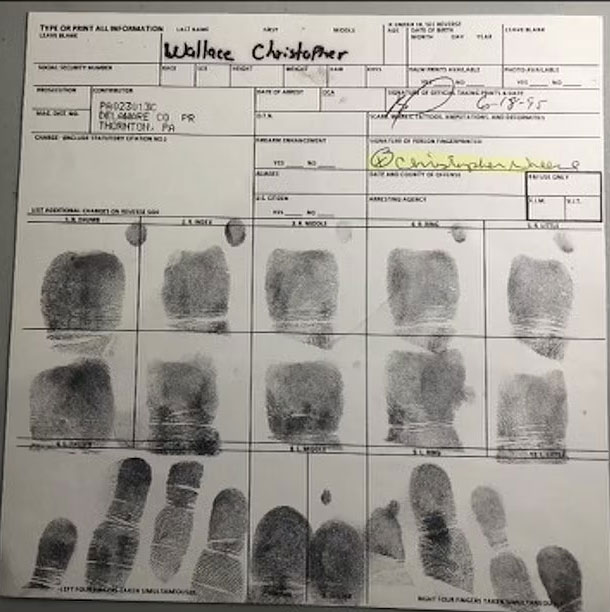 TYPE OR PRINT ALL INFORMATION
LEAVE BLANK
LAST NAME FIRST MIDDLE
Wallace Christopher
AGE DATE OF BIRTH
MONTH DAY YEAR
LEAVE BLANK
SOCIAL SECURITY NUMBER RACE SEX HEIGHT WEIGHT HAIR EYES PALM PRINTS AVAILABLE PHOTO AVAILABLE
YES NO YES NO
PROSECUTION CONTRIBUTOR DATE OF ARREST OCA SIGNATURE OF OFFICIAL TAKING PRINTS & DATE
6-18-95
PA023013C
DELAWARE CO PR
THORNTON, PA
MAG. DIST. NO. O.T.N. SCARS, MARKS, TATTOOS, AMPUTATIONS, AND DEFORMITIES
CHARGE (INCLUDE STATUTORY CITATION NO.) FIREARM ENHANCEMENT SIGNATURE OF PERSON FINGERPRINTED
YES NO
Christopher
ALIASES DATE AND COUNTY OF OFFENSE USE ONLY
U.S. CITIZEN ARRESTING AGENCY
YES NO
LIST ADDITIONAL CHARGES ON REVERSE SIDE
1. R. THUMB 2. R. INDEX 3. R. MIDDLE 4. R. RING 5. R. LITTLE
6. L. THUMB 8. L. MIDDLE 9. L. RING 10. L. LITTLE
LEFT FOUR FINGERS TAKEN SIMULTANEOUSLY RIGHT FOUR FINGERS TAKEN SIMULTANEOUSLY